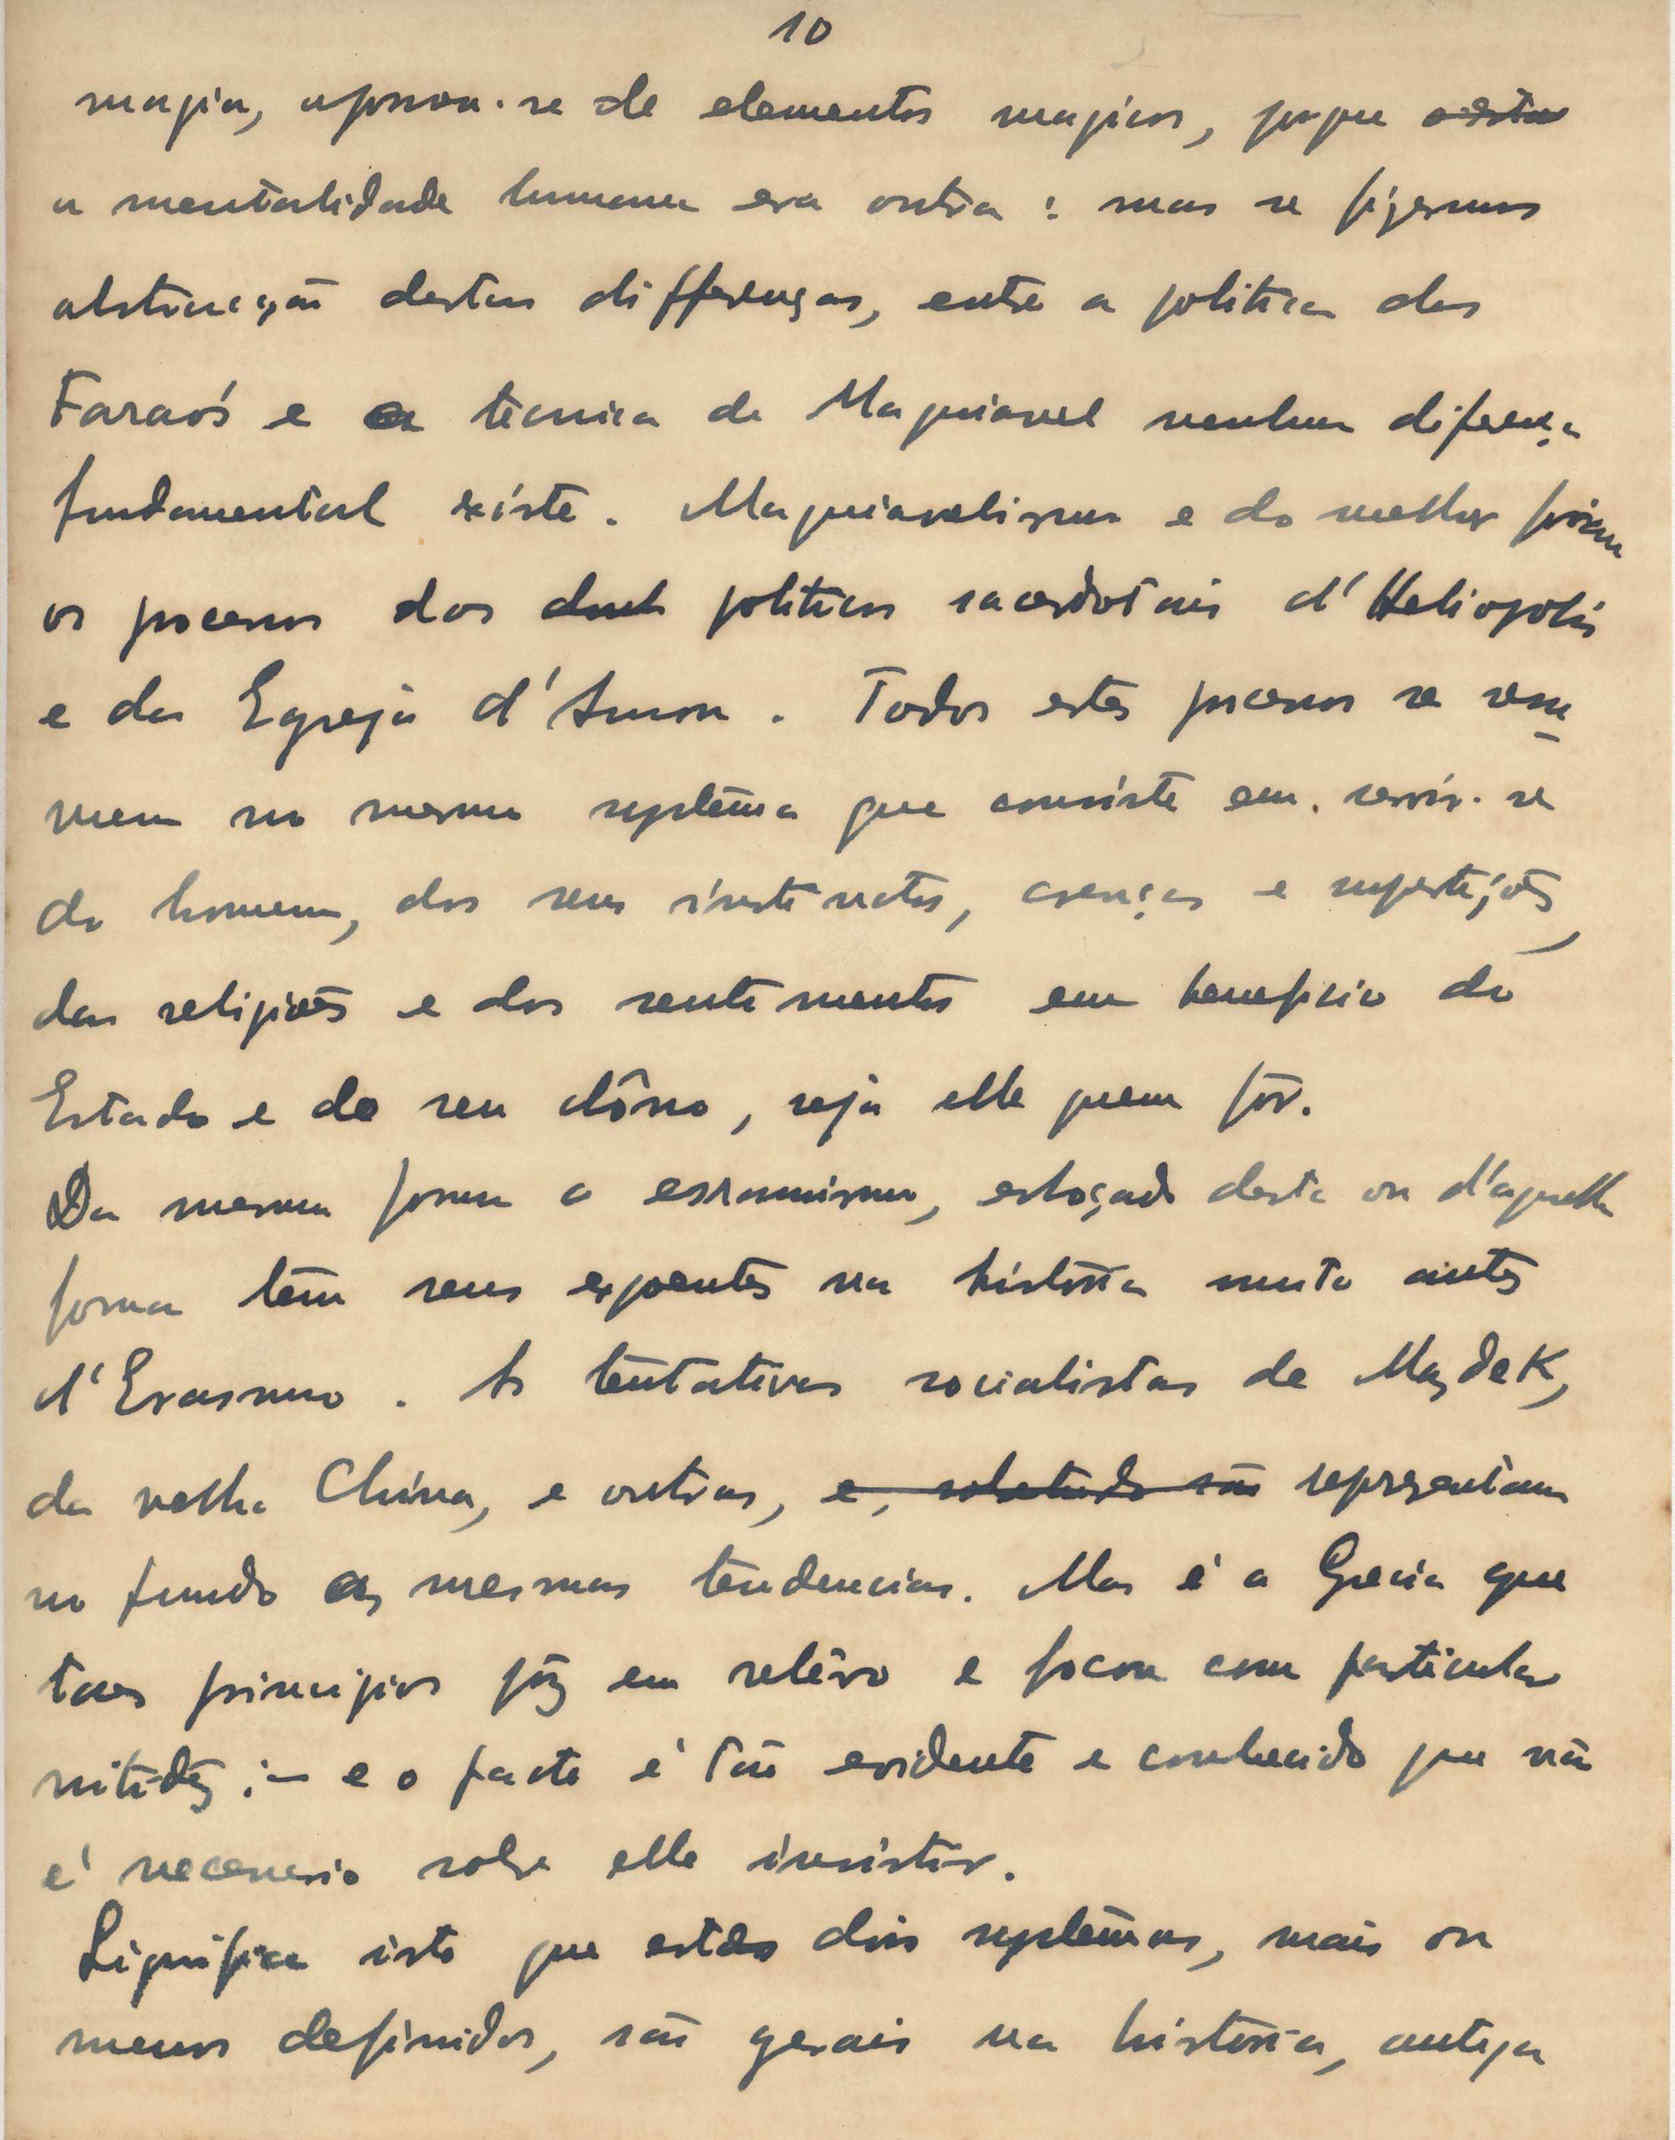 10
magia, apossou-se de elementos magicos, porque
a mentalidade humana era outra: mas se fizermos
abstracção destas differenças, entre a politica dos
Faraós e a técnica de Maquiavel nenhuma diferença
fundamental existe. Maquiavelismo e do melhor foram
os processos dos politicos sacerdotais d'Heliopolis
e da Egreja d'Amon. Todos estes processos se resu
mem no mesmo systêma que consiste em servir-se
do homem, dos seus instinctos, crenças e superstições,
das religiões e dos sentimentos em beneficio do
Estado e do seu dôno, seja elle quem fôr.
Da mesma forma o erasmismo, esboçado desta ou d'aquella
forma têm seus expoentes na história muito antes
d'Erasmo. As tentativas socialistas de Mazdek,
da velha China, e outras, e, sobretudo são representam
no fundo as mesmas tendencias. Mas é a Grecia que
taes principios põz em relêvo e focou com particular
nitidêz: — e o facto é tão evidente e conhecido que não
é necessario sobre elle insistir.
Significa isto que estes dois systêmas, mais ou
menos definidos, são gerais na história, antiga